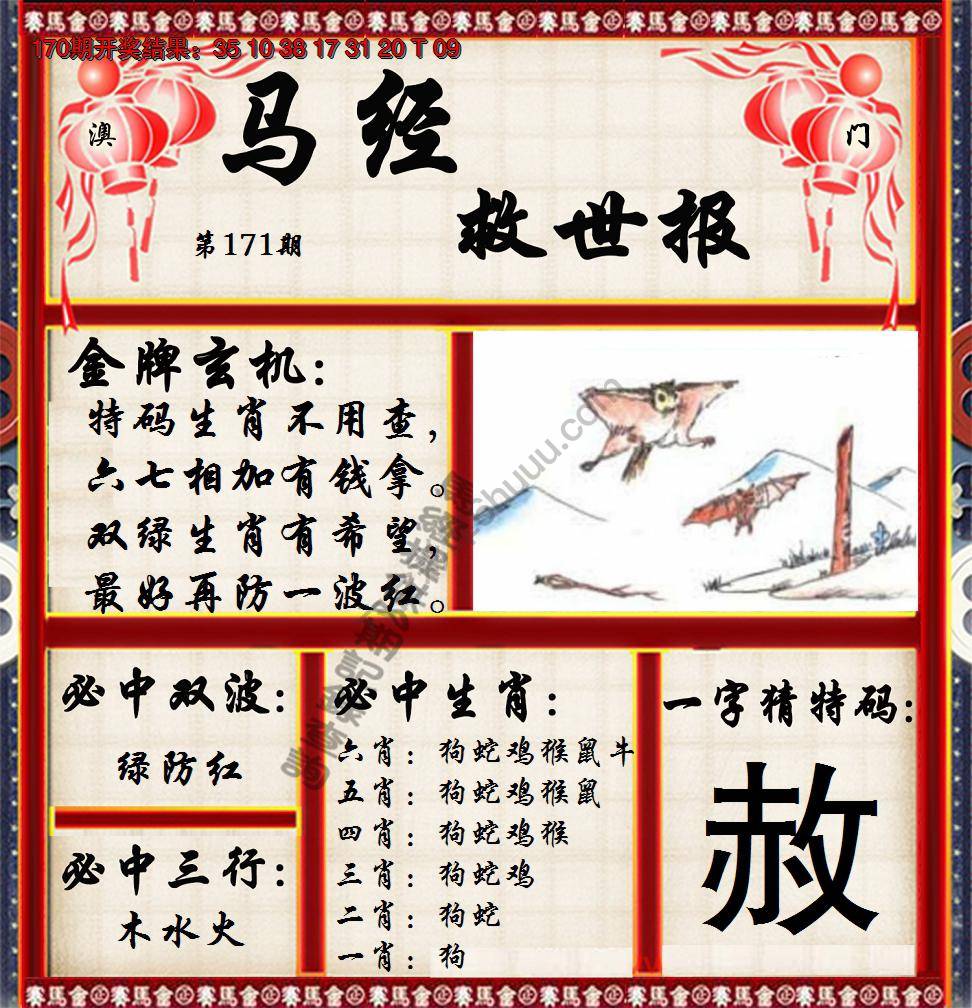 170期开奖结果：35 10 38 17 31 20 T 09
澳
门
马经
救世报
第171期
金牌玄机：
特码生肖不用查，
六七相加有钱拿。
双绿生肖有希望，
最好再防一波红。
必中双波：
绿防红
必中三行：
木水火
必中生肖：
六肖：狗蛇鸡猴鼠牛
五肖：狗蛇鸡猴鼠
四肖：狗蛇鸡猴
三肖：狗蛇鸡
二肖：狗蛇
一肖：狗
一字猜特码：
赦